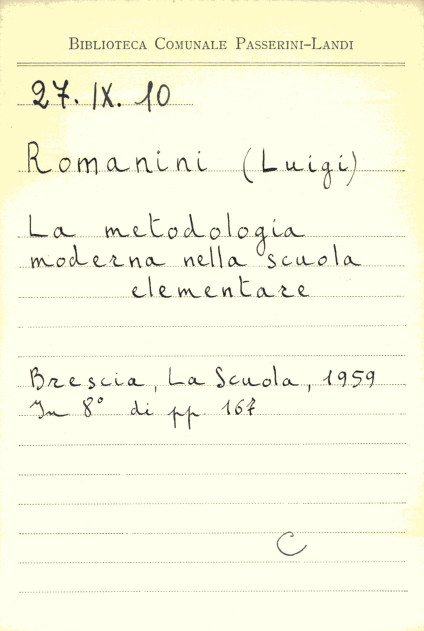 BIBLIOTECA COMUNALE PASSERINI-LANDI
27. IX. 10
Romanini (Luigi)
La metodologia
moderna nella scuola
elementare
Brescia, La Scuola, 1959
In 8° di pp. 167
C